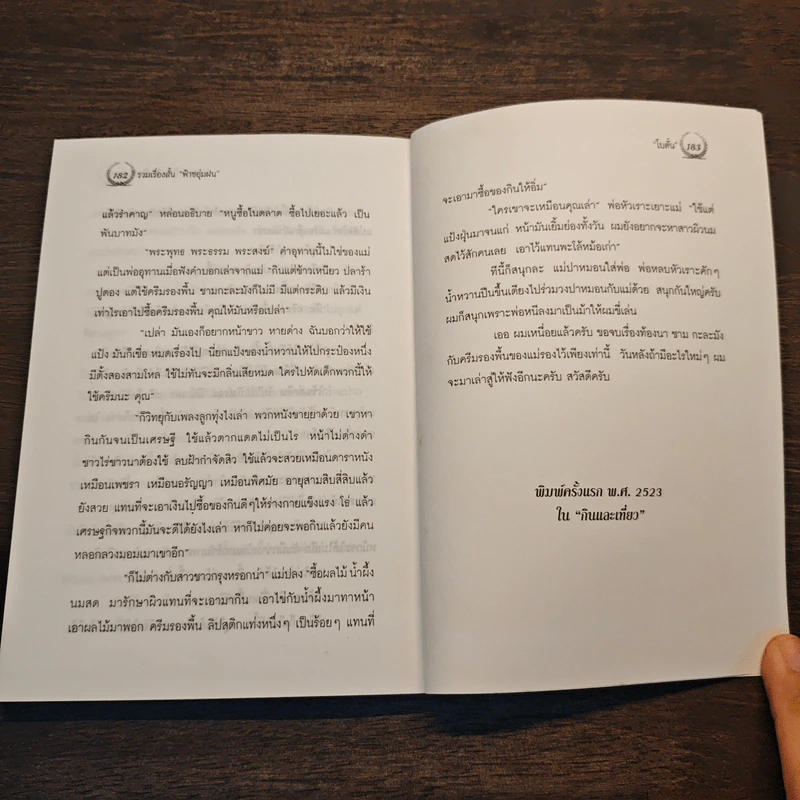 182 รวมเรื่องสั้น "ฟ้าชอุ่มฝน"
แล้วรำคาญ" หล่อนอธิบาย "หนูซื้อในตลาด ซื้อไปเยอะแล้ว เป็น
พันบาทมัง"
"พระพุทธ พระธรรม พระสงฆ์" คำอุทานนี้ไม่ใช่ของแม่
แต่เป็นพ่ออุทานเมื่อฟังคำบอกเล่าจากแม่ "กินแต่ข้าวเหนียว ปลาร้า
ปูดอง แต่ใช้ครีมรองพื้น ชามกะละมังก็ไม่มี มีแต่กระติบ แล้วมีเงิน
เท่าไรเอาไปซื้อครีมรองพื้น คุณให้มันหรือเปล่า"
"เปล่า มันเองก็อยากหน้าขาว หายด่าง ฉันบอกว่าให้ใช้
แป้ง มันก็เชื่อ หมดเรื่องไป นี่ยกแป้งของน้ำหวานให้ไปกระป๋องหนึ่ง
มีตั้งสองสามโหล ใช้ไม่ทันจะมีกลิ่นเสียหมด ใครไปหัดเด็กพวกนี้ให้
ใช้ครีมนะ คุณ"
"ก็วิทยุกับเพลงลูกทุ่งไงเล่า พวกหนังขายยาด้วย เขาหา
กินกันจนเป็นเศรษฐี ใช้แล้วตากแดดไม่เป็นไร หน้าไม่ด่างดำ
ชาวไร่ชาวนาต้องใช้ ลบฝ้ากำจัดสิว ใช้แล้วจะสวยเหมือนดาราหนัง
เหมือนเพชรา เหมือนอรัญญา เหมือนพิศมัย อายุสามสิบสี่สิบแล้ว
ยังสวย แทนที่จะเอาเงินไปซื้อของกินดีๆให้ร่างกายแข็งแรง โธ่ แล้ว
เศรษฐกิจพวกนี้มันจะดีได้ยังไงเล่า หาก็ไม่ค่อยจะพอกินแล้วยังมีคน
หลอกลวงมอมเมาเขาอีก"
"ก็ไม่ต่างกับสาวชาวกรุงหรอกน่า" แม่ปลง "ซื้อผลไม้ น้ำผึ้ง
นมสด มารักษาผิวแทนที่จะเอามากิน เอาไข่กับน้ำผึ้งมาทาหน้า
เอาผลไม้มาพอก ครีมรองพื้น ลิปสติกแท่งหนึ่งๆ เป็นร้อยๆ แทนที่
"โบตั๋น" 183
จะเอามาซื้อของกินให้อิ่ม"
"ใครเขาจะเหมือนคุณเล่า" พ่อหัวเราะเยาะแม่ "ใช้แต่
แป้งฝุ่นมาจนแก่ หน้ามันเยิ้มย่องทั้งวัน ผมยังอยากจะหาสาวผิวนม
สดไว้สักคนเลย เอาไว้แทนพะโล้หม้อเก่า"
ทีนี้ก็สนุกละ แม่ปาหมอนใส่พ่อ พ่อหลบหัวเราะดักๆ
น้ำหวานปีนขึ้นเตียงไปร่วมวงปาหมอนกับแม่ด้วย สนุกกันใหญ่ครับ
ผมก็สนุกเพราะพ่อหนีลงมาเป็นม้าให้ผมขี่เล่น
เออ ผมเหนื่อยแล้วครับ ขอจบเรื่องท้องนา ชาม กะละมัง
กับครีมรองพื้นของแม่รองไว้เพียงเท่านี้ วันหลังถ้ามีอะไรใหม่ๆ ผม
จะมาเล่าสู่ให้ฟังอีกนะครับ สวัสดีครับ
พิมพ์ครั้งแรก พ.ศ. 2523
ใน "กินและเที่ยว"